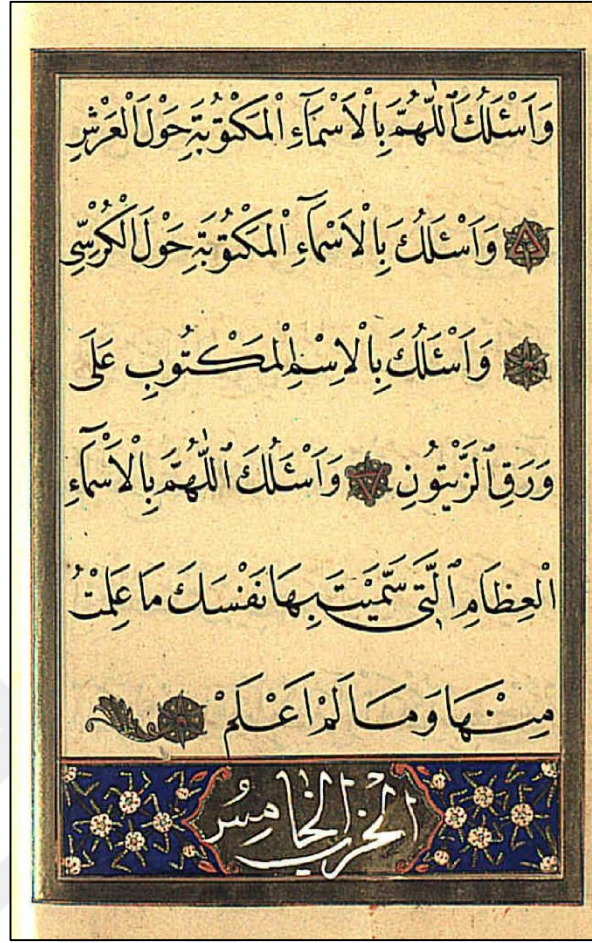 وَاَسْئَلُكَ ٱللّٰهُمَّ بِالْاَسْمَآءِ الْمَكْتُوْبَةِ حَوْلَ الْعَرْشِ
وَاَسْئَلُكَ بِالْاَسْمَآءِ الْمَكْتُوْبَةِ حَوْلَ الْكُرْسِيِّ
وَاَسْئَلُكَ بِالْاِسْمِ الْمَكْتُوبِ عَلَى
وَرَقِ ٱلزَّيْتُونِ وَاَسْئَلُكَ ٱللّٰهُمَّ بِالْاَسْمَآءِ
الْعِظَامِ ٱلَّتِي سَمَّيْتَ بِهَا نَفْسَكَ مَا عَلِمْتُ
مِنْهَا وَمَا لَمْ اَعْلَمْ
الْحِزْبُ الْخَامِسُ